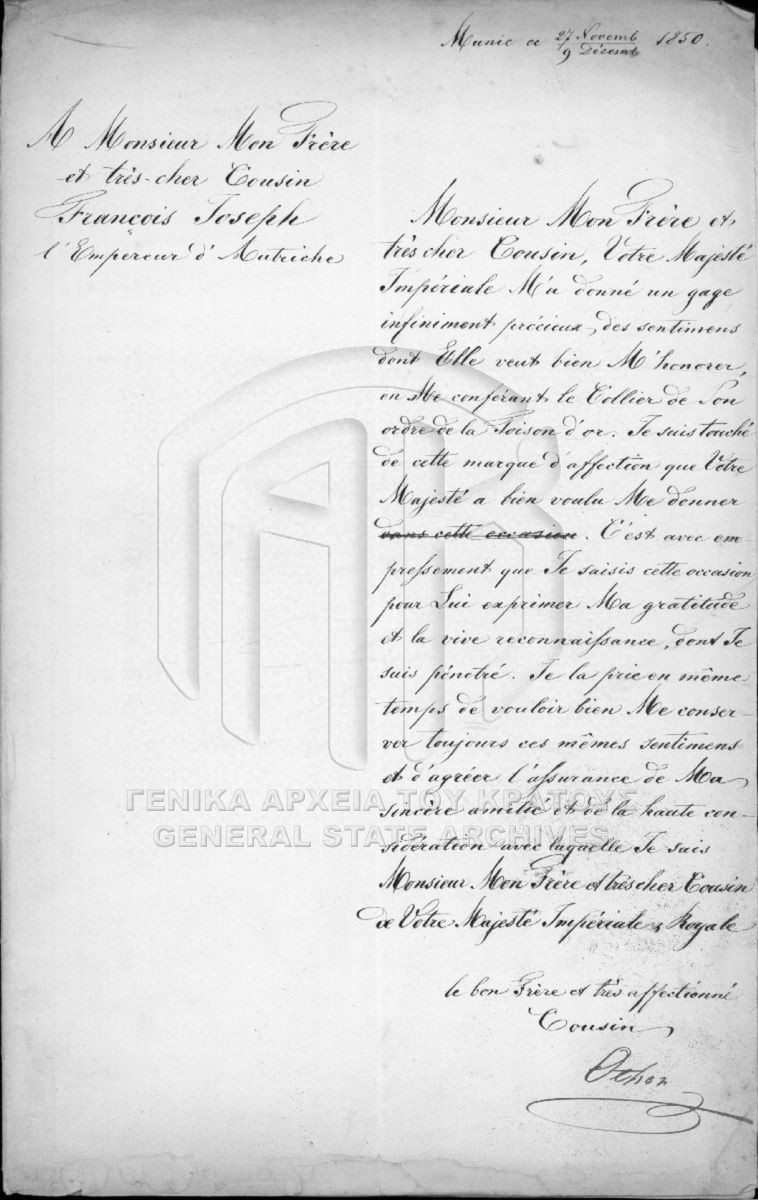 Munic ce 27 Novemb / 9 Décemb 1850.
A Monsieur Mon Frère
et très-cher Cousin
François Joseph
l'Empereur d'Autriche
Monsieur Mon Frère et
très cher Cousin, Votre Majesté
Impériale M'a donné un gage
infiniment précieux, des sentimens
dont Elle veut bien M'honorer,
en Me conférant le Collier de Son
ordre de la Toison d'or. Je suis touché
de cette marque d'affection que Votre
Majesté a bien voulu Me donner
dans cette occasion. C'est avec em-
pressement que Je saisis cette occasion
pour Lui exprimer Ma gratitude
et la vive reconnaissance, dont Je
suis pénétré. Je la prie en même
temps de vouloir bien Me conser-
ver toujours ces mêmes sentimens
et d'agréer l'assurance de Ma
sincère amitié et de la haute con-
sidération avec laquelle Je suis
Monsieur Mon Frère et très cher Cousin
de Votre Majesté Impériale & Royale
le bon Frère et très affectionné
Cousin
Othon
ΓΕΝΙΚΑ ΑΡΧΕΙΑ ΤΟΥ ΚΡΑΤΟΥΣ
GENERAL STATE ARCHIVES